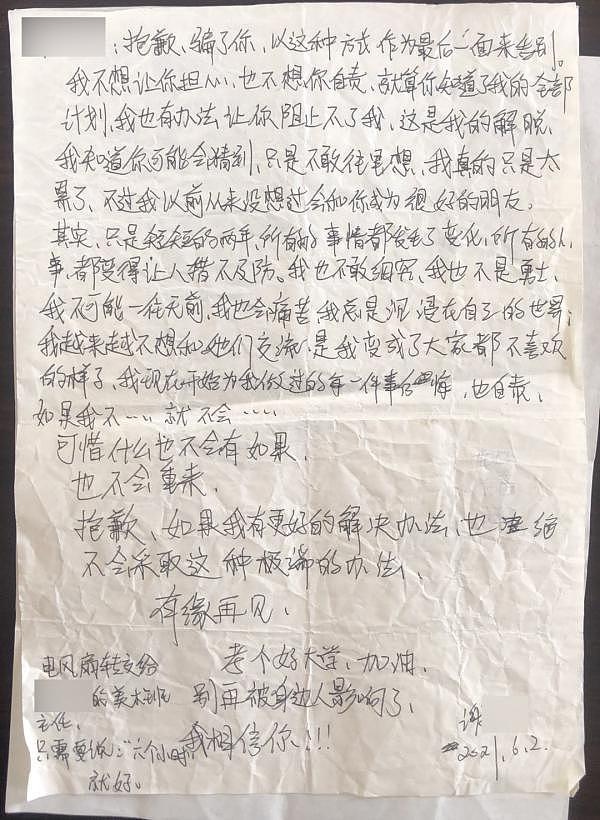 ：抱歉、骗了你，以这种方式作为最后一面来告别。
我不想让你担心，也不想你自责、就算你知道了我的全部
计划，我也有办法让你阻止不了我，这是我的解脱、
我知道你可能会猜到、只是不敢往里想、我真的只是太
累了、不过我以前从来没想过会和你成为很好的朋友。
其实、只是短短的两年，所有的事情都发生了变化，所有的人、
事、都变得让人措不及防。我也不敢细究、我也不是勇士、
我不可能一往无前、我也会痛苦、我总是沉浸在自己的世界；
我越来越不想和她们交流、是我变成了大家都不喜欢
的样子、我现在开始为我做过的每一件事后悔、也自责、
如果我不……就不会……
可惜什么也不会有如果、
也不会重来、
抱歉、如果我有更好的解决办法、也
不会采取这种极端的办法、
有缘再见、
考个好大学、加油、
别再被身边人影响了、
我相信你、!!!
电风扇转交给
的美术班
主任、
只需要 六个小时
就好。
2021.6.2.